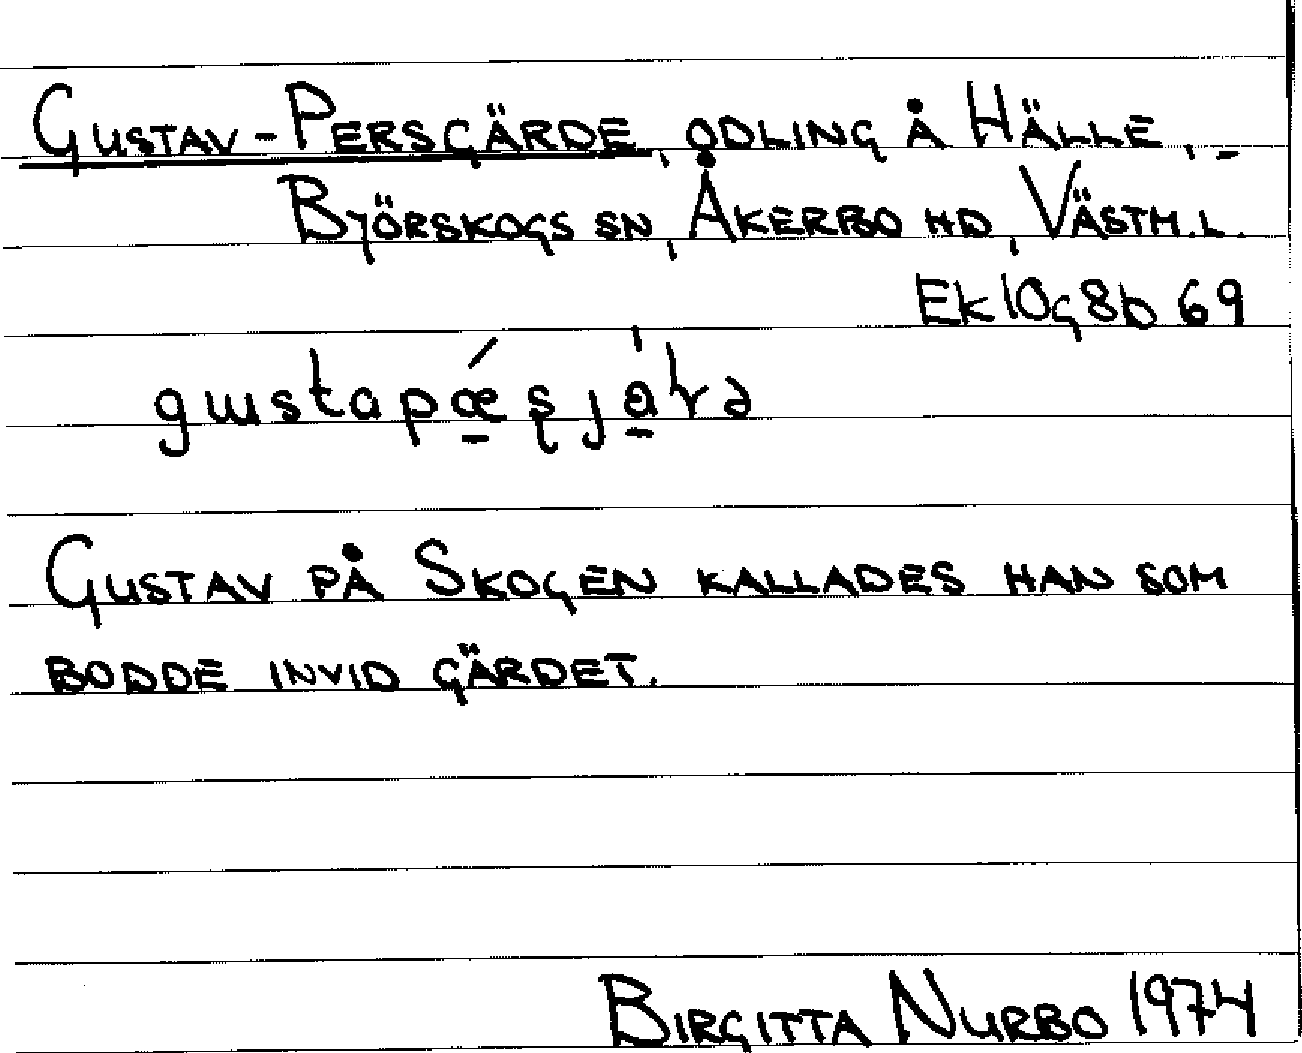 GUSTAV-PERSGÄRDE, ODLING Å HÄLLE,
BJÖRSKOGS SN, ÅKERBO HD, VÄSTM.L.
Ek 10g8b 69
GUSTAV PÅ SKOGEN KALLADES HAN SOM
BODDE INVID GÄRDET.
BIRGITTA NURBO 1974